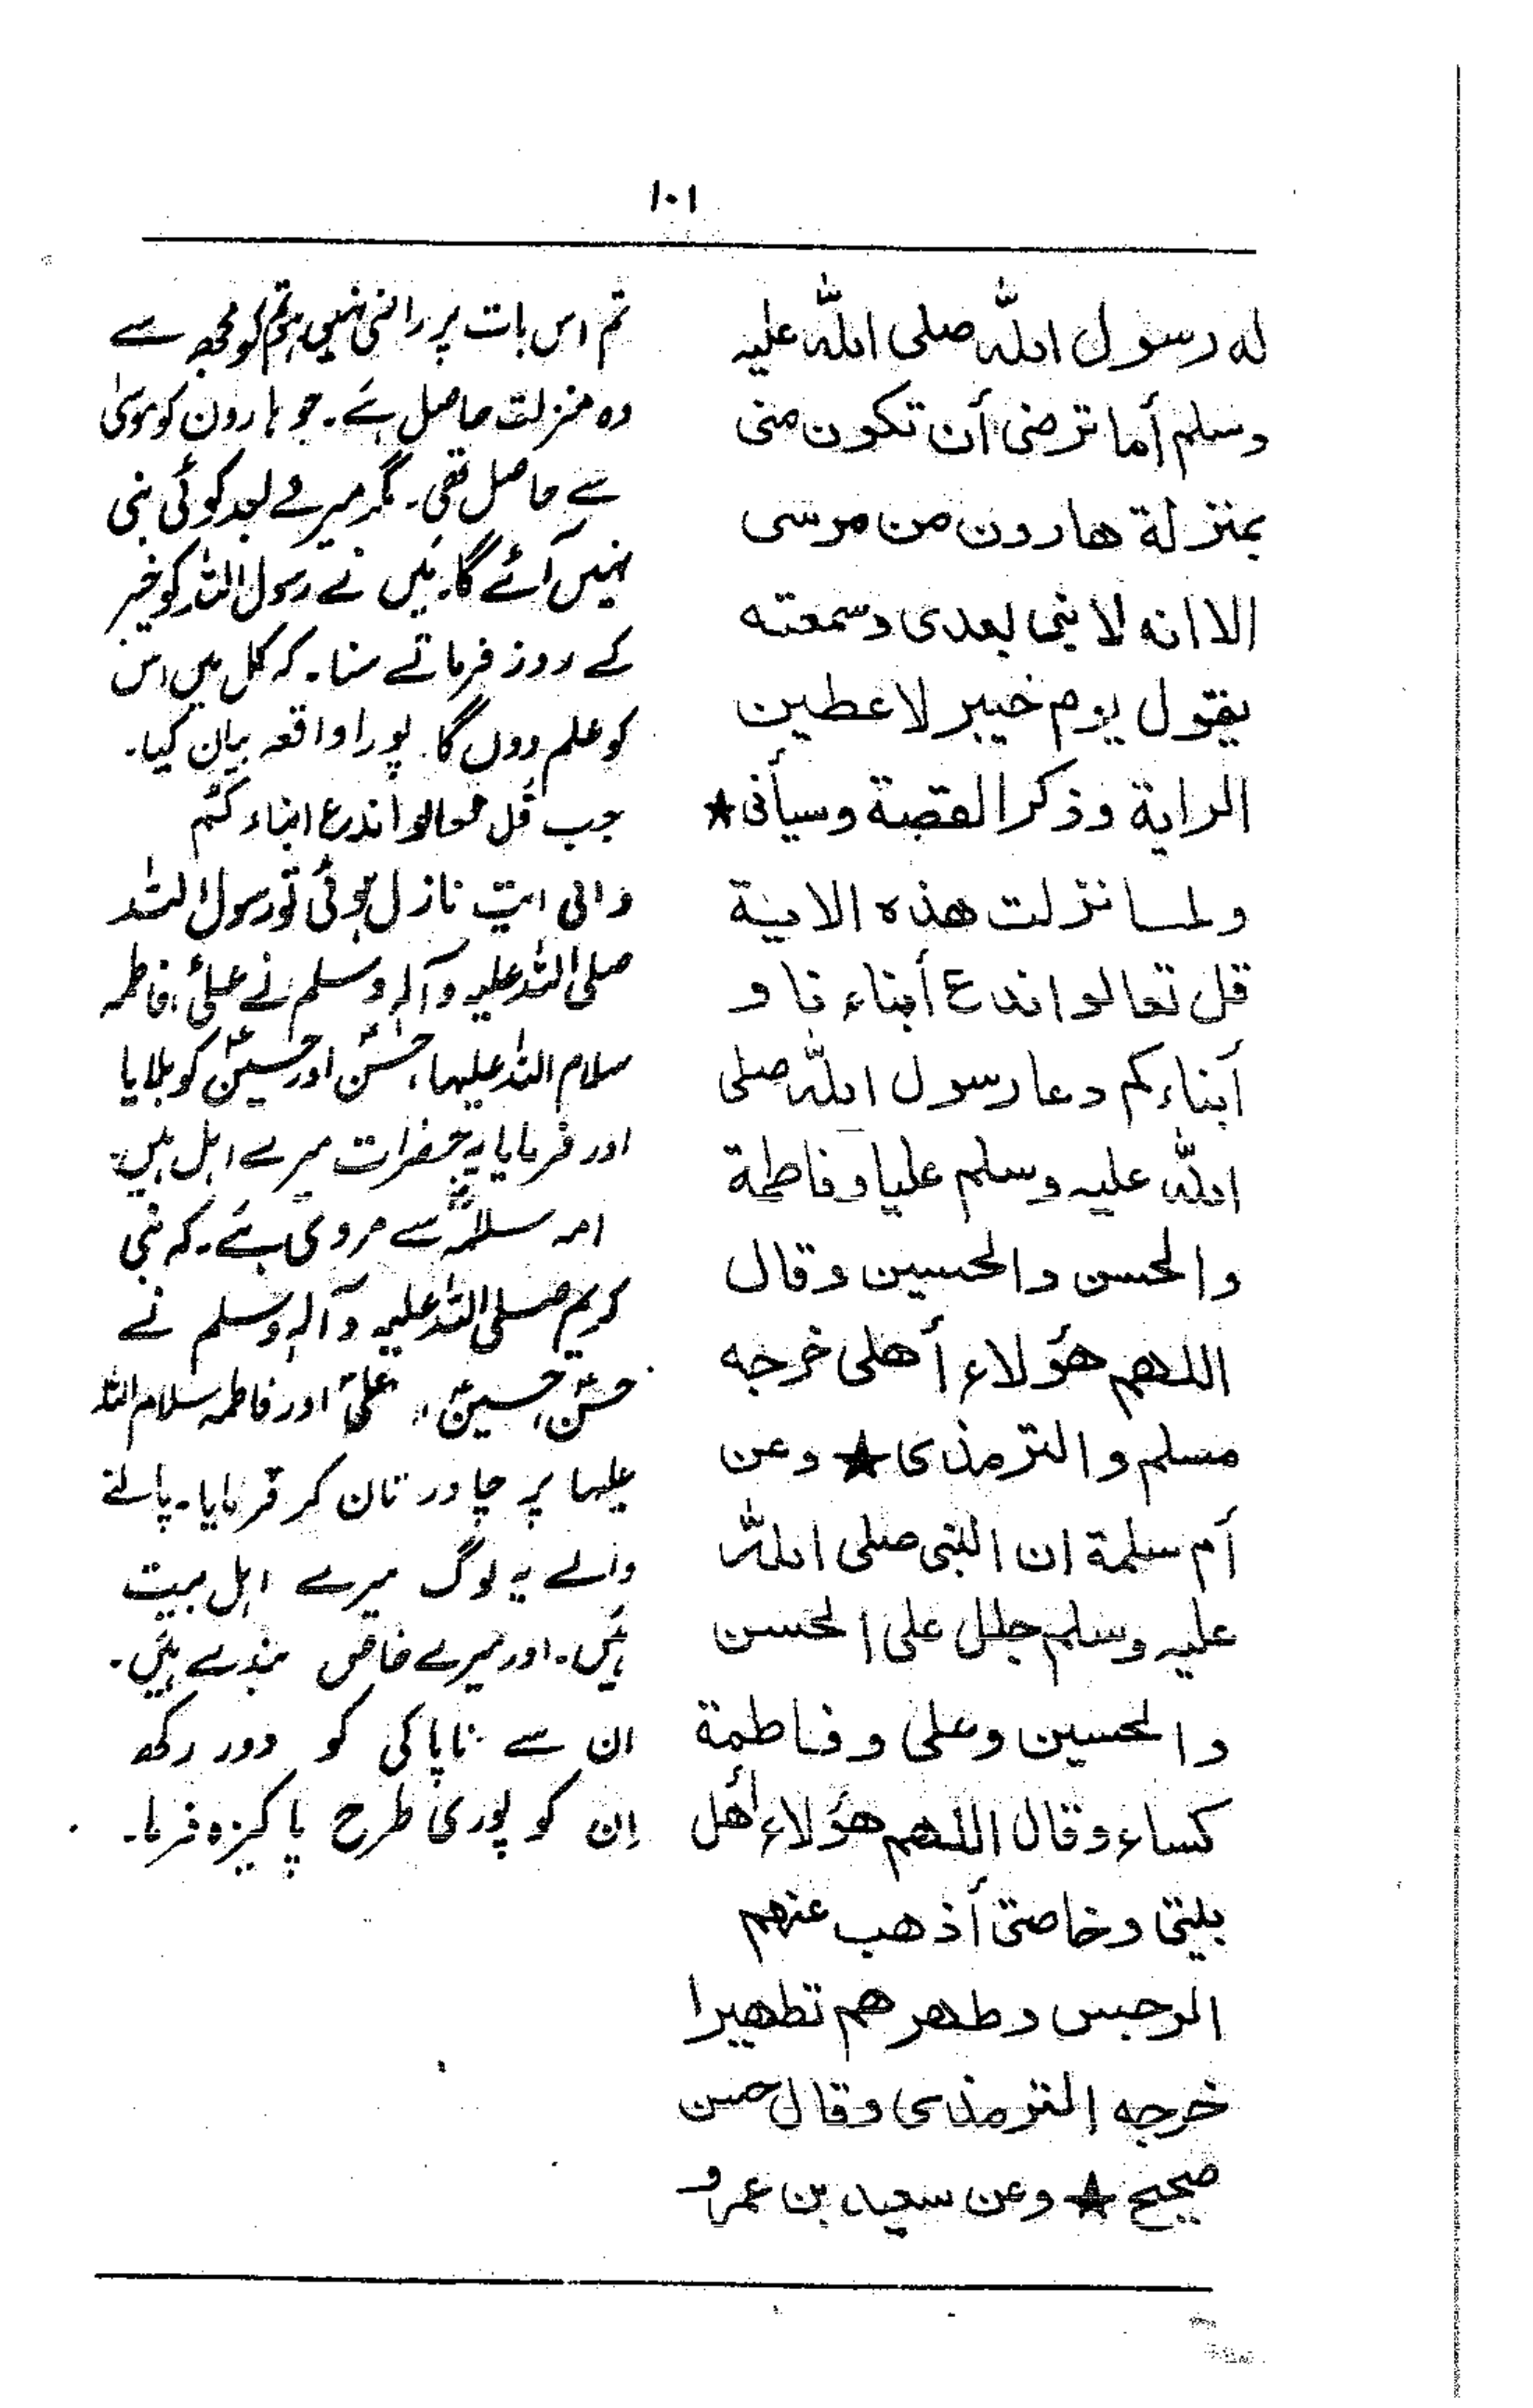 ۱۰۱
له رسول الله صلى الله عليه
وسلم أما ترضى أن تكون منى
بمنزلة هارون من موسى
الا انه لا نبى بعدى وسمعته
يقول يوم خيبر لاعطين
الراية وذكر القصة وسيأتى ★
ولما نزلت هذه الاية
قل تعالوا ندع أبناء نا و
أبناءكم دعا رسول الله صلى
الله عليه وسلم عليا وفاطمة
والحسن والحسين وقال
اللهم هؤلاء أهلى خرجه
مسلم والترمذى ★ وعن
أم سلمة ان النبى صلى الله
عليه وسلم جلل على الحسن
والحسين وعلى وفاطمة
كساء وقال اللهم هؤلاء أهل
بيتى وخاصتى أذهب عنهم
الرجس وطهرهم تطهيرا
خرجه الترمذى وقال حسن
صحيح ★ وعن سعيد بن عمرو
تم اس بات پر راضی نہیں ہتم کو مجھ سے
وہ منزلت حاصل ہے۔ جو ہارون کو موسیٰ
سے حاصل تھی۔ مگر میرے بعد کوئی نبی
نہیں آئے گا۔ میں نے رسول اللہ کو خیبر
کے روز فرماتے سنا۔ کہ کل میں اس
کو علم دوں گا۔ پورا واقعہ بیان کیا۔
جب قل تعالوا ندع ابناء کم
والی ایت نازل ہوئی تو رسول اللہ
صلی اللہ علیہ وآلہ وسلم نے علیؑ، فاطمہ
سلام اللہ علیہا، حسنؑ اور حسینؑ کو بلایا
اور فرمایا یہ حضرات میرے اہل ہیں۔
امہ سلمہؓ سے مروی ہے۔ کہ نبی
کریم صلی اللہ علیہ وآلہ وسلم نے
حسنؑ، حسینؑ، علیؑ اور فاطمہ سلام اللہ
علیہا پر چادر تان کر فرمایا۔ پالنے
والے یہ لوگ میرے اہل بیت
ہیں۔ اور میرے خاص بندے ہیں۔
ان سے ناپاکی کو دور رکھ
اِن کو پوری طرح پاکیزہ فرما۔